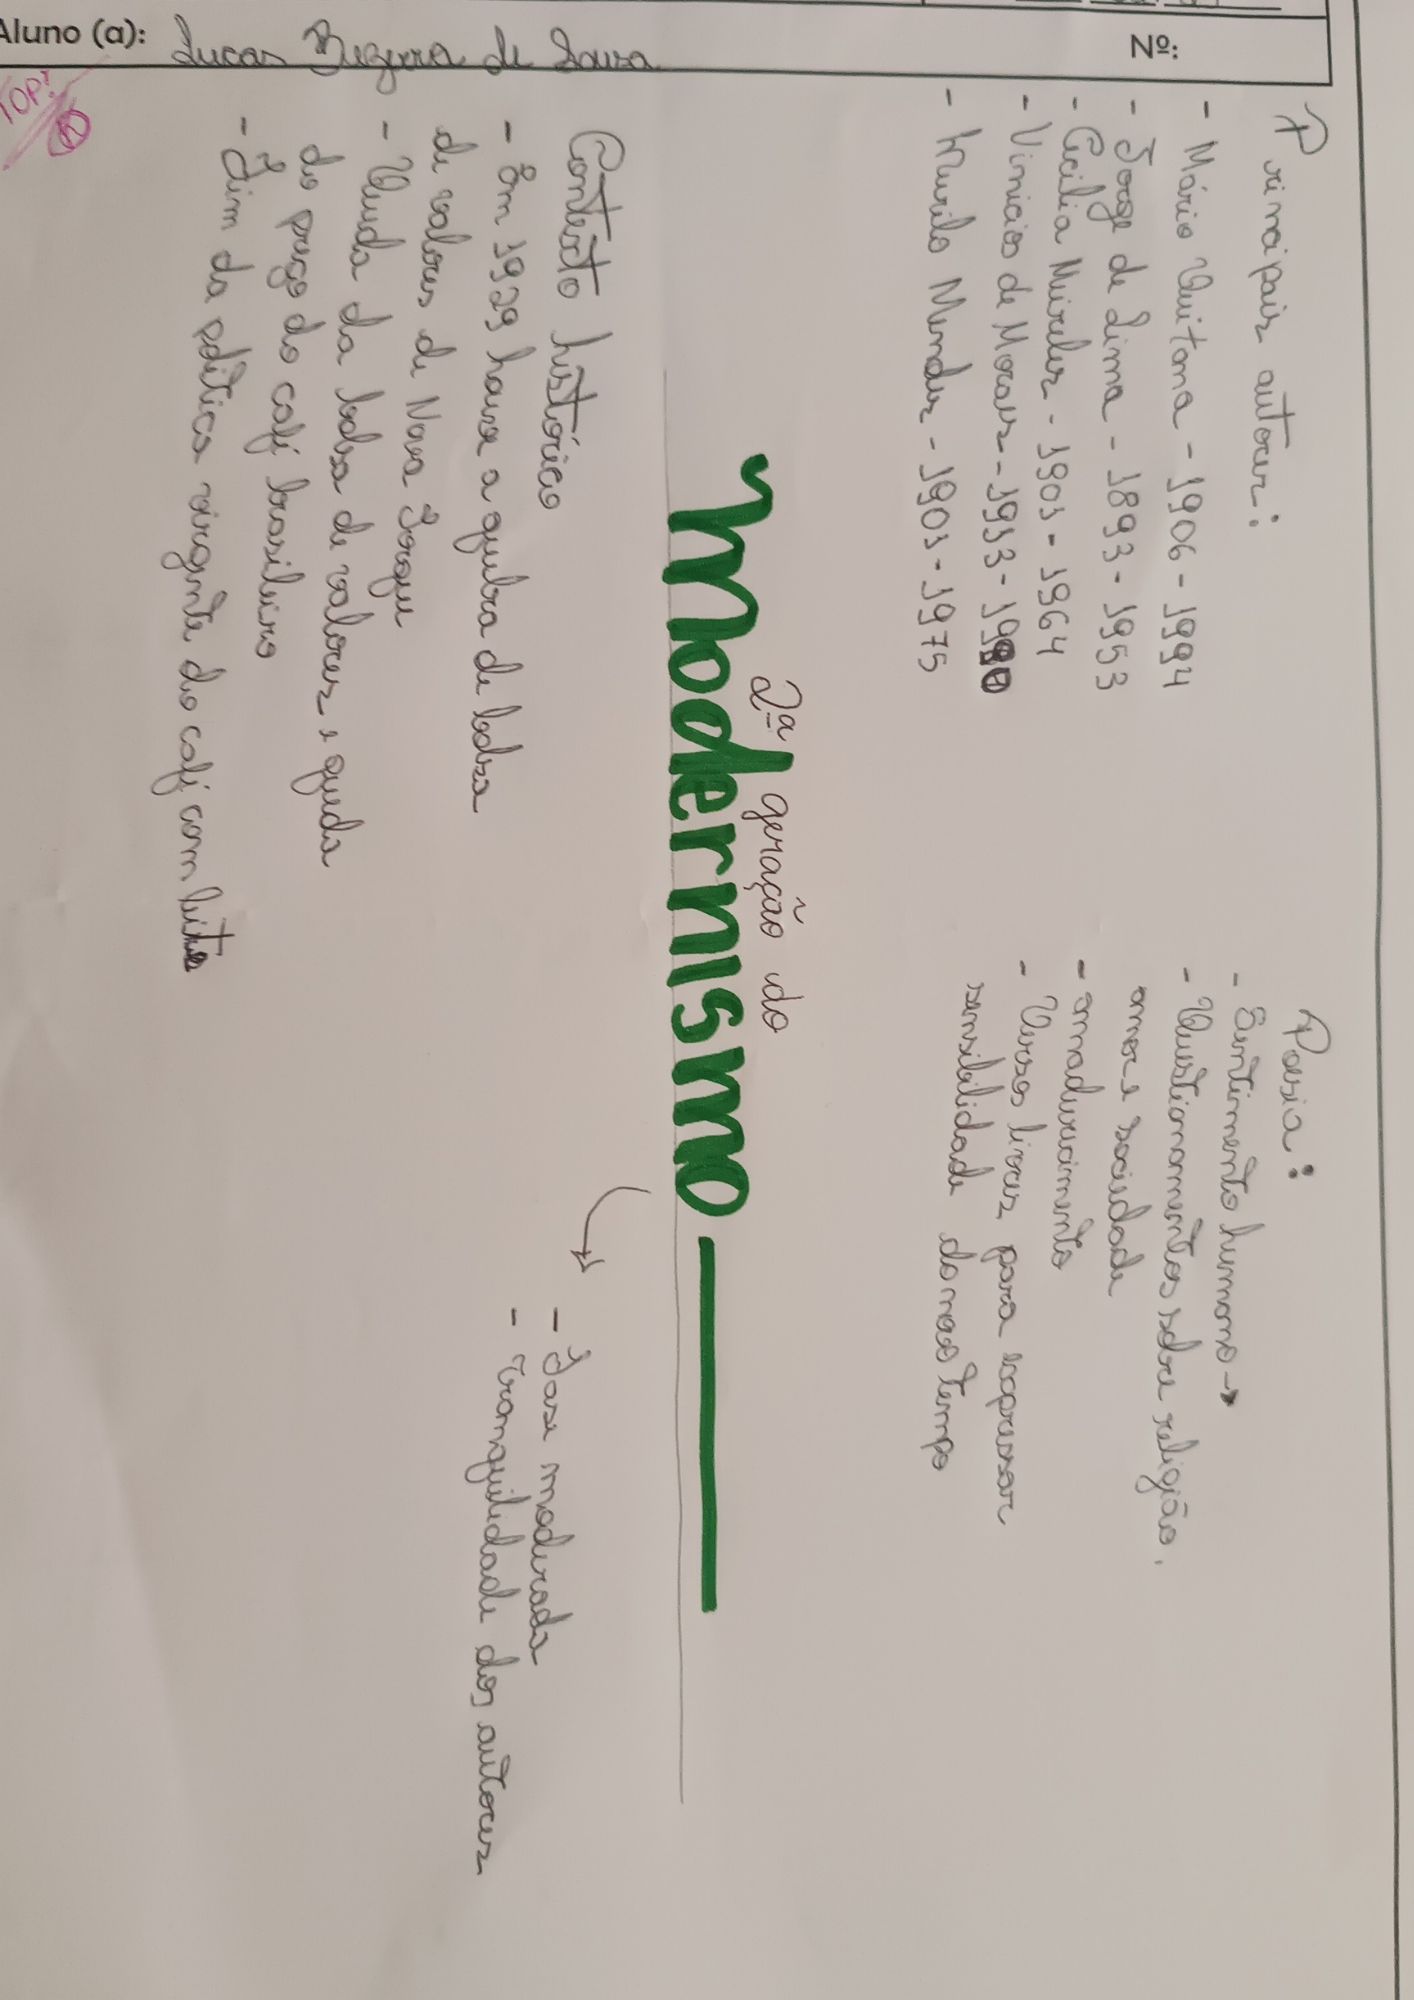 Aluno (a): Lucas Bezerra de Souza
Nº:
TOP!
Principais autores:
- Mário Quitana - 1906 - 1994
- Jorge de Lima - 1893 - 1953
- Cecilia Meireles - 1901 - 1964
- Vinicios de Moraes - 1933 - 1990
- Murilo Mendes - 1901 - 1975
Poesia:
- Sentimento humano →
- Questionamentos sobre religião,
amor e sociedade
- amadurecimento
- Versos livres para expressar
sensibilidade do novo tempo
2ª geração do
Modernismo
- Fase moderada
- tranquilidade dos autores
Contexto histórico
- Em 1929 houve a quebra de bolsa
de valores de Nova Iorque
- Queda da bolsa de valores e queda
do preço do café brasileiro
- Fim da política vingente do café com leite